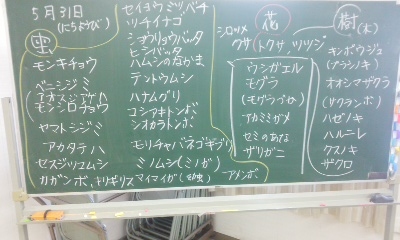 5月31日
(にちようび)
虫
モンキチョウ
ベニシジミ
モンシロチョウ
ヤマトシジミ
アカタテハ
セスジツユムシ
ガガンボ、キリギリス
セイヨウミツバチ
ツチイナゴ
ショウリョウバッタ
ヒシバッタ
ハムシのなかま
テントウムシ
ハナムグリ
コシアキトンボ
シオカラトンボ
モリチャバネゴキブリ
ミノムシ(ミノガ)
マイマイガ(幼虫)
アメンボ
花
シロツメクサ
トクサ
ツツジ
ウシガエル
モグラ
アカミミガメ
セミのあな
ザリガニ
樹(木)
キンポウジュ
(ブラシノキ)
オオシマザクラ
(サクランボ)
ハゼノキ
ハルニレ
クスノキ
ザクロ